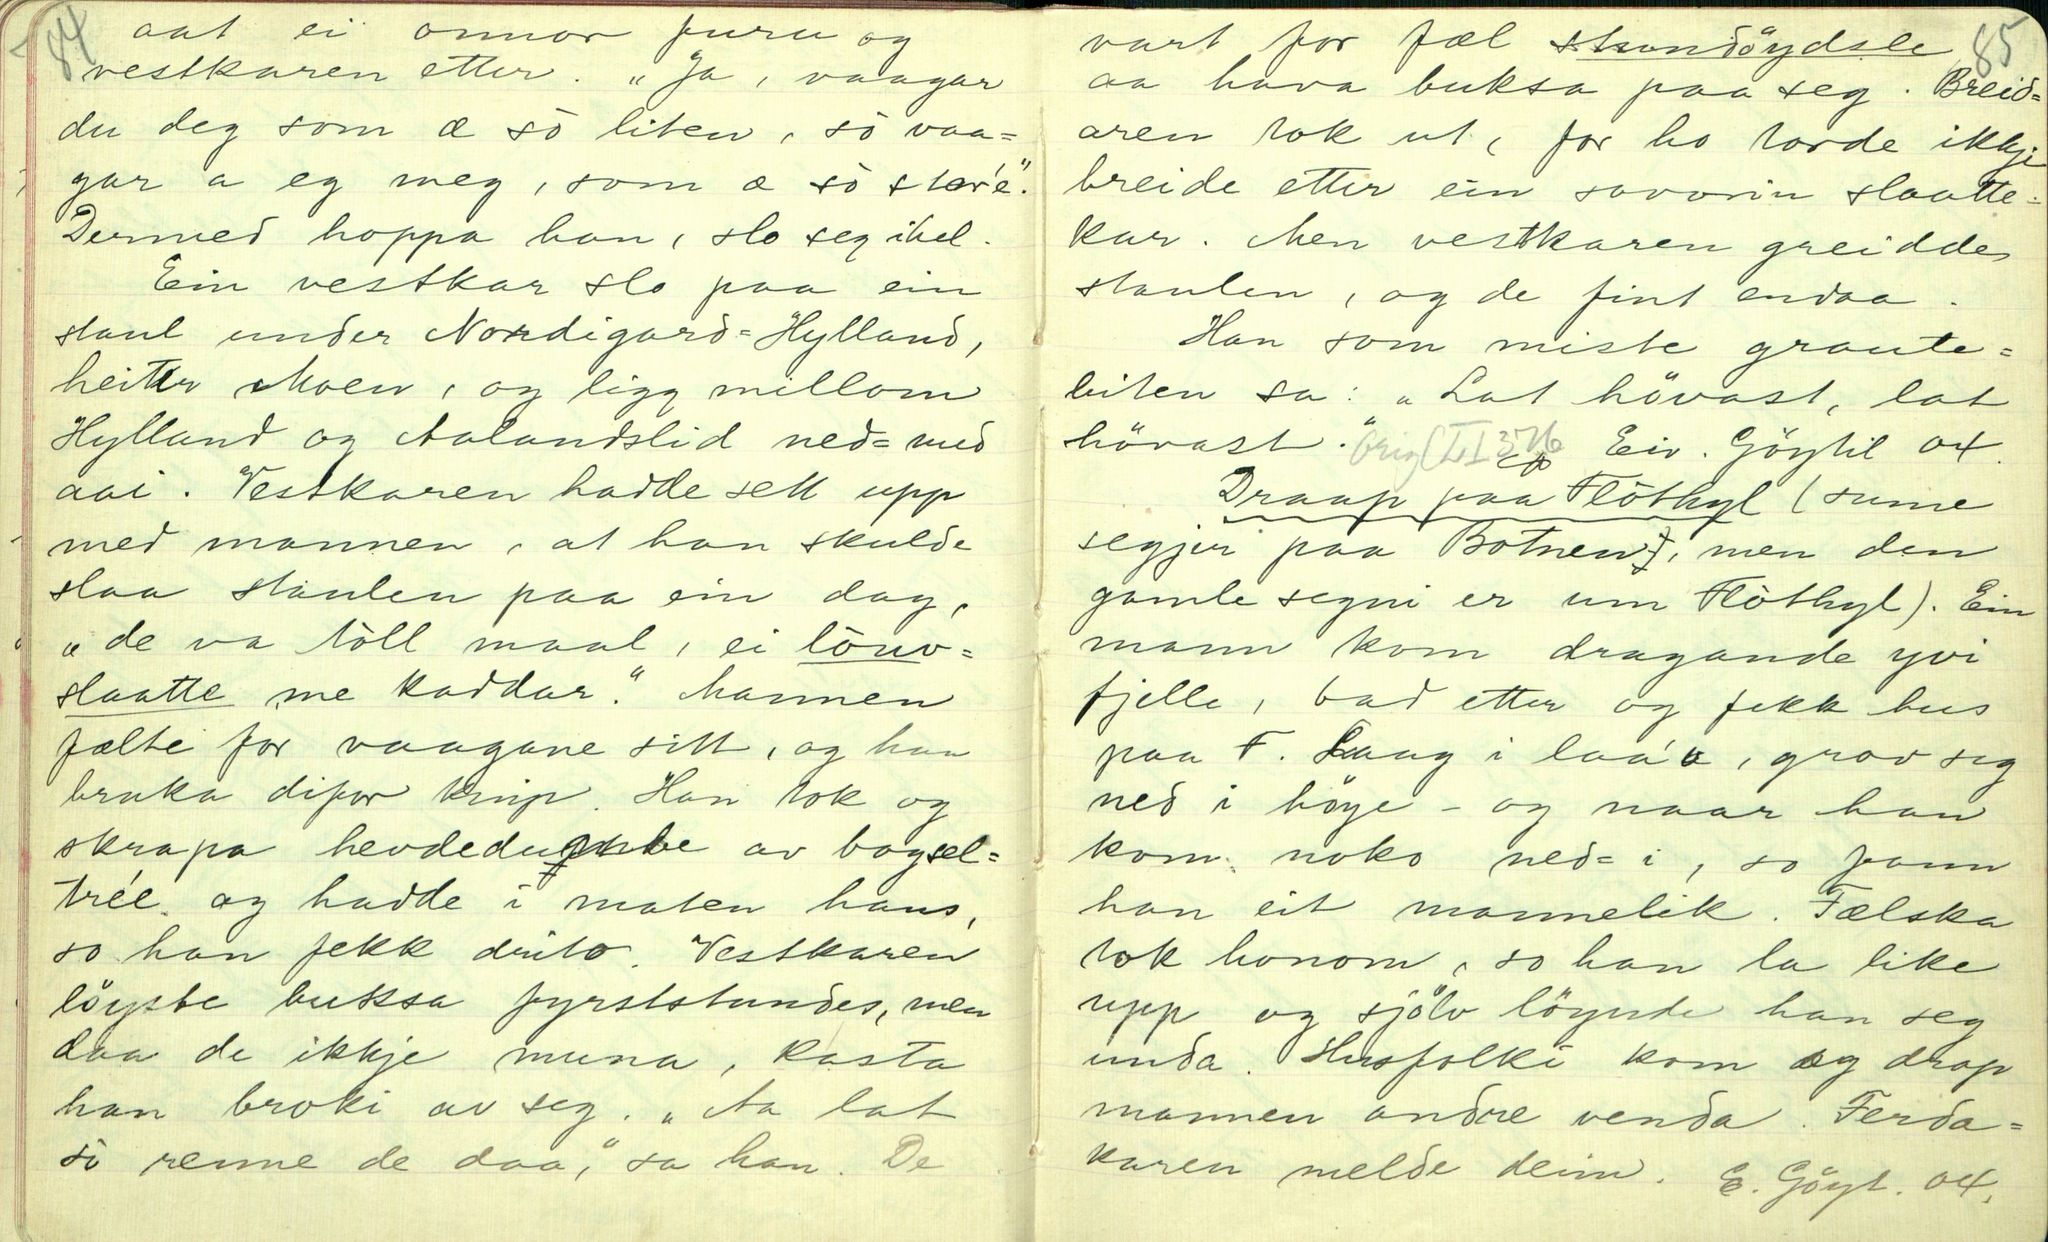 84
aat ei onnor furu og
vestkaren etter. „Ja, vaagar
du deg som æ sò liten, sò vaa=
gar a eg meg, som æ sò stor'e".
Dermed hoppa han, slo seg ihel.
Ein vestkar slo paa ein
staul under Nordigard=Hylland,
heiter Moen, og ligg millom
Hylland og Aalandslid ned=med
aai. Vestkaren hadde sett upp
med mannen, at han skulde
slaa staulen paa ein dag,
„de va tòll maal, ei lòuv=
slaatte me kaddar." Mannen
fælte for vaagane sitt, og han
bruka difor knip. Han tok og
skrapa hevdedu be av bogsel=
tréé og hadde i maten hans,
so han fekk drito. Vestkaren
löyste buksa fyrststundes, men
daa de ikkje muna, kasta
han broki av seg. „Aa lat
sò renne de daa," sa han. De
85
vart for fæl stundöydsle
aa hava buksa paa seg. Breid=
aren tok ut, for ho torde ikkje
breide etter ein sovorin slaatte=
kar. Men vestkaren greidde
staulen, og de fint endaa.
Han som miste graute=
biten sa: „Lat hövast, lat
hövast." Orig (LI 376 Eiv. Göytil 04.
Draap paa Flòthyl (sume
segjer paa Botnen), men den
gamle segni er um Flòthyl). Ein
mann kom dragande yvi
fjelle, bad etter og fekk hus
paa F. Laag i laa'o, grov seg
ned i höye – og naar han
kom noko ned=i, so fann
han eit mannelik. Fælska
tok honom, so han la like
upp og sjölv löynde han seg
unda. Husfolki kom og drap
mannen andre venda. Ferda=
karen melde deim. E. Göyt. 04.